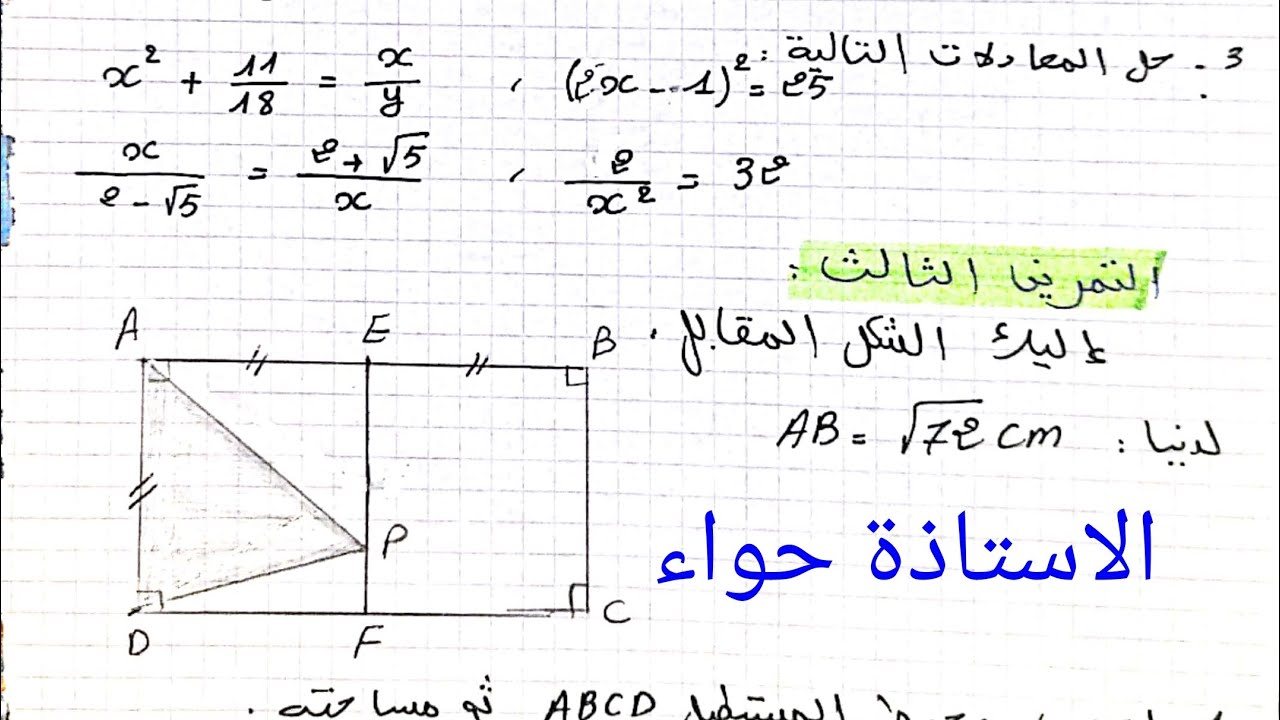 3. حل المعادلات التالية :
(2x - 1)² = 25 , x² + 11/18 = x/y
2/x² = 32 , x/(2 - √5) = (2 + √5)/x
التمرين الثالث :
إليك الشكل المقابل .
لدنيا : AB = √72 cm
الاستاذة حواء
A E B
P
D F C
المستطيل ABCD ثم مساحته .